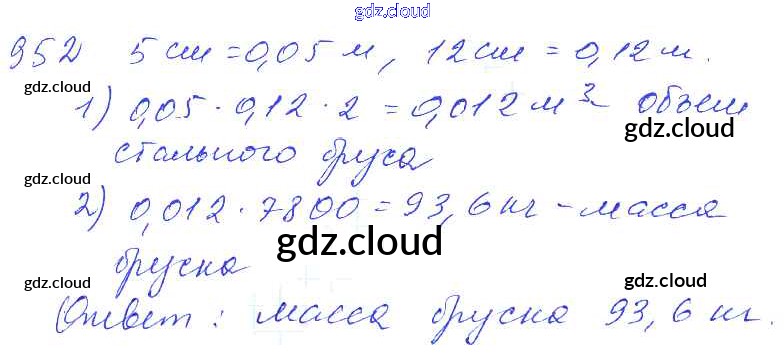 gdz.cloud
952 5 см = 0,05 м, 12 см = 0,12 м.
gdz.cloud
1) 0,05 · 0,12 · 2 = 0,012 м³ - объем
gdz.cloud
стального бруса
gdz.cloud
2) 0,012 · 7800 = 93,6 кг - масса
gdz.cloud
бруска
gdz.cloud gdz.cloud
Ответ: масса бруска 93,6 кг.